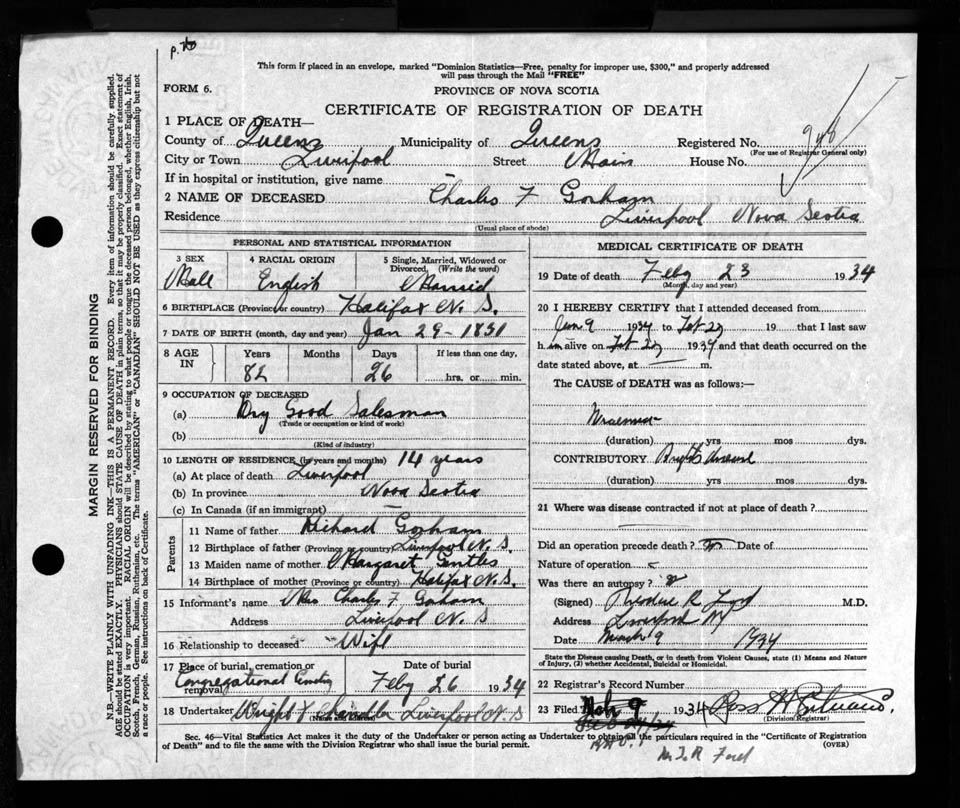 p. to
This form if placed in an envelope, marked "Dominion Statistics—Free, penalty for improper use, $300," and properly addressed
will pass through the Mail "FREE"
FORM 6.
PROVINCE OF NOVA SCOTIA
CERTIFICATE OF REGISTRATION OF DEATH
1 PLACE OF DEATH—
County of Queens Municipality of Queens Registered No. 948
(For use of Registrar General only)
City or Town Liverpool Street Main House No.
If in hospital or institution, give name
2 NAME OF DECEASED Charles F Gorham
Residence Liverpool Nova Scotia
(Usual place of abode)
PERSONAL AND STATISTICAL INFORMATION
3 SEX 4 RACIAL ORIGIN 5 Single, Married, Widowed or Divorced. (Write the word)
Male English Married
6 BIRTHPLACE (Province or country) Halifax N. S.
7 DATE OF BIRTH (month, day and year) Jan 29 - 1851
8 AGE IN Years Months Days If less than one day,
82 26 hrs. or min.
9 OCCUPATION OF DECEASED
(a) Dry Good Salesman
(Trade or occupation or kind of work)
(b)
(Kind of industry)
10 LENGTH OF RESIDENCE (in years and months) 14 years
(a) At place of death Liverpool
(b) In province Nova Scotia
(c) In Canada (if an immigrant) —
Parents
11 Name of father Richard Gorham
12 Birthplace of father (Province or country) Liverpool N. S.
13 Maiden name of mother Margaret Gentles
14 Birthplace of mother (Province or country) Halifax N. S.
15 Informant's name Mrs Charles F Goham
Address Liverpool N. S
16 Relationship to deceased Wife
17 Place of burial, cremation or removal Date of burial
Congregational Feby 26 1934
18 Undertaker Wright & Chandler Liverpool N. S
(Name and address)
MEDICAL CERTIFICATE OF DEATH
19 Date of death Feby 23 1934
(Month, day and year)
20 I HEREBY CERTIFY that I attended deceased from
Jan 9 1934 to Feb 23 19 that I last saw
h im alive on Feb 23 1934 and that death occurred on the
date stated above, at — m.
The CAUSE of DEATH was as follows:—
Uraemia
(duration) yrs mos dys.
CONTRIBUTORY Brights disease
(duration) yrs. mos. dys.
21 Where was disease contracted if not at place of death?
Did an operation precede death? no Date of
Nature of operation
Was there an autopsy? no
(Signed) Theodore R Ford M.D.
Address Liverpool NS
Date March 9 1934
State the Disease causing Death, or in death from Violent Causes, state (1) Means and Nature
of Injury, (2) whether Accidental, Suicidal or Homicidal.
22 Registrar's Record Number
23 Filed Mch 9 1934 Ross H
(Division Registrar)
Sec. 46—Vital Statistics Act makes it the duty of the Undertaker or person acting as Undertaker to obtain all the particulars required in the "Certificate of Registration
of Death" and to file the same with the Division Registrar who shall issue the burial permit.
(OVER)
R Ford
MARGIN RESERVED FOR BINDING
N.B.—WRITE PLAINLY WITH UNFADING INK—THIS IS A PERMANENT RECORD. Every item of information should be carefully supplied.
AGE should be stated EXACTLY. PHYSICIANS should STATE CAUSE OF DEATH in plain terms, so that it may be properly classified. Exact statement of
OCCUPATION is very important. RACIAL ORIGIN will be described by stating to what people or tongue the deceased person belonged, whether English, Irish,
Scotch, French, German, Russian, Ruthenian, etc. The terms "AMERICAN" or "CANADIAN" SHOULD NOT BE USED as they express citizenship but not
a race or people. See instructions on back of Certificate.